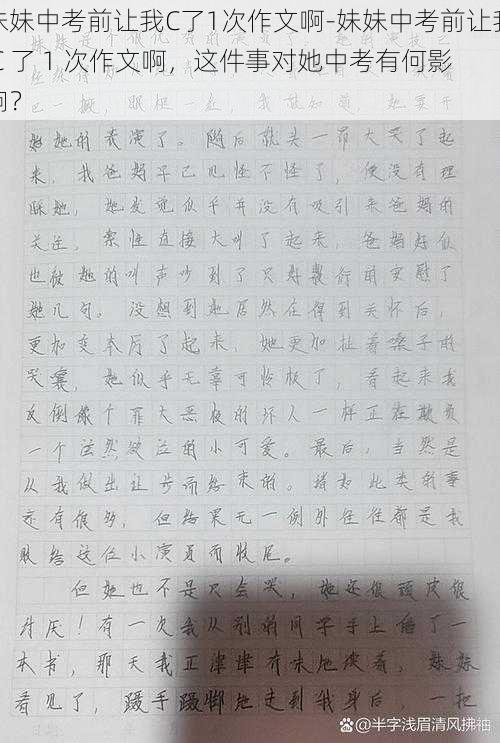 妹妹中考前让我C了1次作文啊-妹妹中考前让我
C 了 1 次作文啊，这件事对她中考有何影
响？
巴一撅，眼眶一红，我就知道，她要开
始她的表演了。随后就头一昂大哭了起
来，我爸妈早已见怪不怪了，便没有理
睬她，她发觉似乎并没有吸引来爸妈的
关注，索性直接大叫了起来，爸妈好似
也被她的叫声吵到了只好敷衍的安慰了
她几句。没想到她居然在得到关怀后，
更加变本厉了起来，她更加扯着嗓子的
哭嚷，她似乎无辜可怜极了，看起来我
反倒像个罪大恶极的坏人一样正在欺负
一个泫然欲泣的小可爱。最后，当然是
从我做出让步而结束的。诸如此类的事
还有很多，但结果无一例外往往都是我
服给这位小演员而收尾。
但她也不是只会哭，她还很顽皮很
讨厌！有一次我从别的同学手上借了一
本书，那天我正津津有味地读着，妹妹
看见了，蹑手蹑脚地走到我身后，一把
@半字浅眉清风拂袖